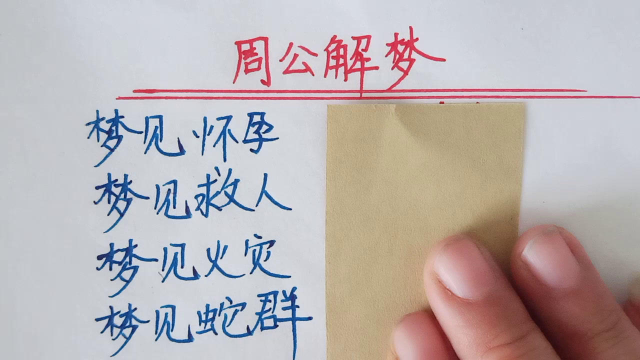 周公解梦
梦见怀孕
梦见救人
梦见火灾
梦见蛇群